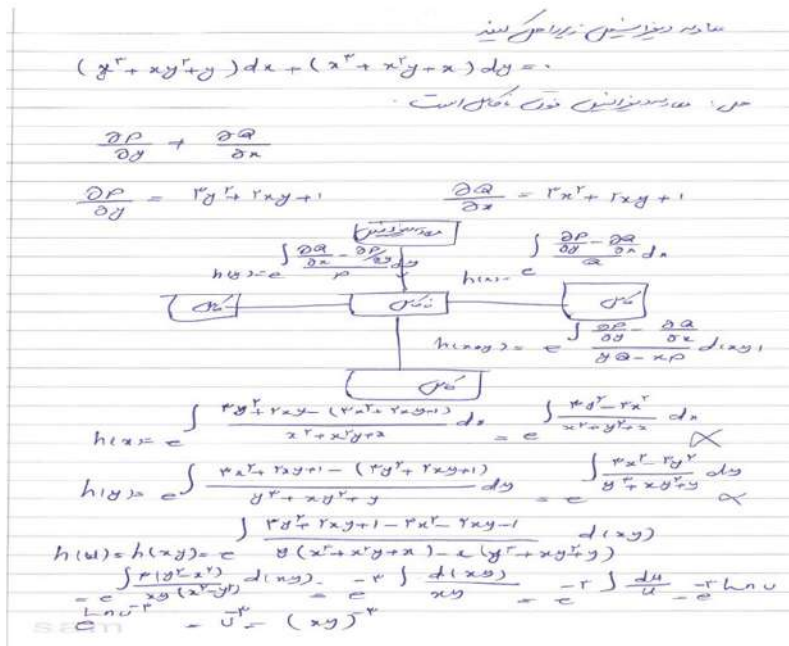 معادله دیفرانسیل زیر را حل کنید
(y³ + xy² + y) dx + (x³ + x²y + x) dy = ۰
حل: معادله دیفرانسیل فوق کامل است.
∂P/∂y + ∂Q/∂x
∂P/∂y = ۳y² + ۲xy + ۱    ∂Q/∂x = ۳x² + ۲xy + ۱
معادله دیفرانسیل
h(y) = e^∫ (∂Q/∂x − ∂P/∂y)/P dy    h(x) = e^∫ (∂P/∂y − ∂Q/∂x)/Q dx
کامل    کامل
h(xy) = e^∫ (∂P/∂y − ∂Q/∂x)/(yQ − xP) d(xy)
کامل
h(x) = e^∫ (۳y² + ۲xy − (۳x² + ۲xy + ۱))/(x³ + x²y + x) dx = e^∫ (۳y² − ۳x²)/(x³ + y² + x) dx
h(y) = e^∫ (۳x² + ۲xy + ۱ − (۳y² + ۲xy + ۱))/(y³ + xy² + y) dy = e^∫ (۳x² − ۳y²)/(y³ + xy² + y) dy
h(u) = h(xy) = e^∫ (۳y² + ۲xy + ۱ − ۳x² − ۲xy − ۱)/(y(x³ + x²y + x) − x(y³ + xy² + y)) d(xy)
= e^∫ ۳(y² − x²)/(xy(x² − y²)) d(xy) = e^−۳ ∫ d(xy)/xy = e^−۳ ∫ du/u = e^−۳ Ln u
e^Ln u^−۳ = u^−۳ = (xy)^−۳
sam